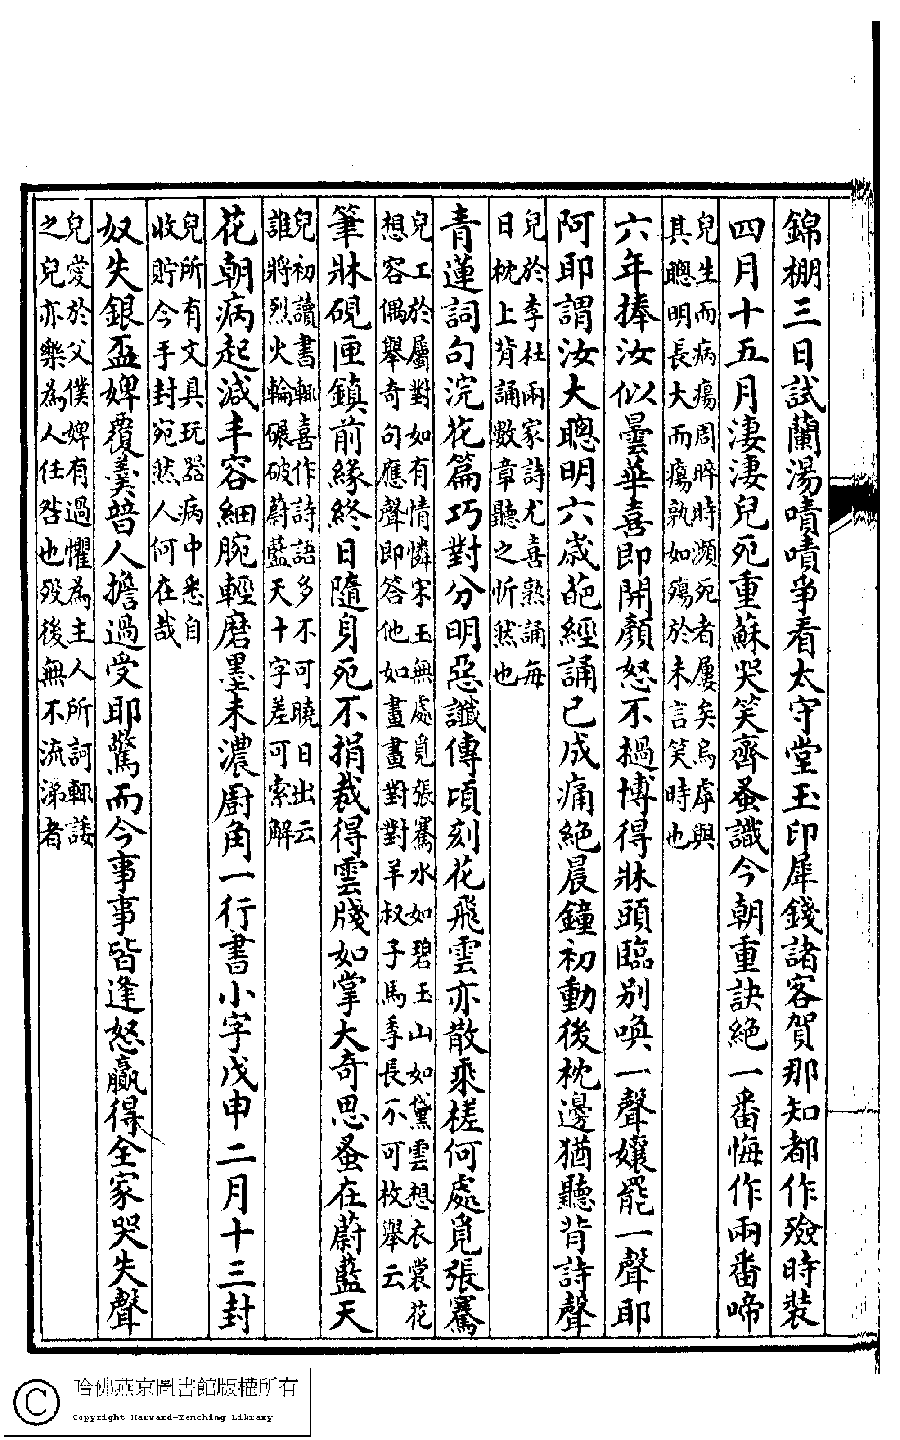 錦棚三日試蘭湯嘖嘖爭看太守堂玉印犀錢諸客賀那知都作殮時裝
四月十五月淒淒兒死重蘇哭笑齊蚤識今朝重訣絕一番悔作兩番啼
兒生而病瘍周晬時瀕死者屢矣烏虖與
其聰明長大而瘍孰如殤於未言笑時也
六年捧汝似曇華喜即開顏怒不撾博得牀頭臨別喚一聲孃罷一聲耶
阿耶謂汝大聰明六歲葩經誦已成痛絕晨鐘初動後枕邊猶聽背詩聲
兒於李杜兩家詩尤喜熟誦每
日枕上背誦數章聽之忻然也
青蓮詞句浣花篇巧對分明惡讖傳頃刻花飛雲亦散乘槎何處覓張騫
兒工於屬對如有情憐宋玉無處覓張騫水如碧玉山如黛雲想衣裳花
想容偶舉奇句應聲即答他如畫畫對對羊叔子馬季長不可枚舉云
筆牀硯匣鎮前緣終日隨身死不捐裁得雲牋如掌大奇思蚤在蔚藍天
兒初讀書輒喜作詩語多不可曉日出云
誰將烈火輪碾破蔚藍天十字差可索解
花朝病起減丰容細腕輕磨墨未濃廚角一行書小字戊申二月十三封
兒所有文具玩器病中悉自
收貯今手封宛然人何在哉
奴失銀盃婢覆羹曾人擔過受耶驚而今事事皆逢怒贏得全家哭失聲
兒愛於父僕婢有過懼為主人所訶輒諉
之兒亦樂為人任咎也歿後無不流涕者
哈佛燕京圖書館版權所有
Copyright Harvard-Yenching Library